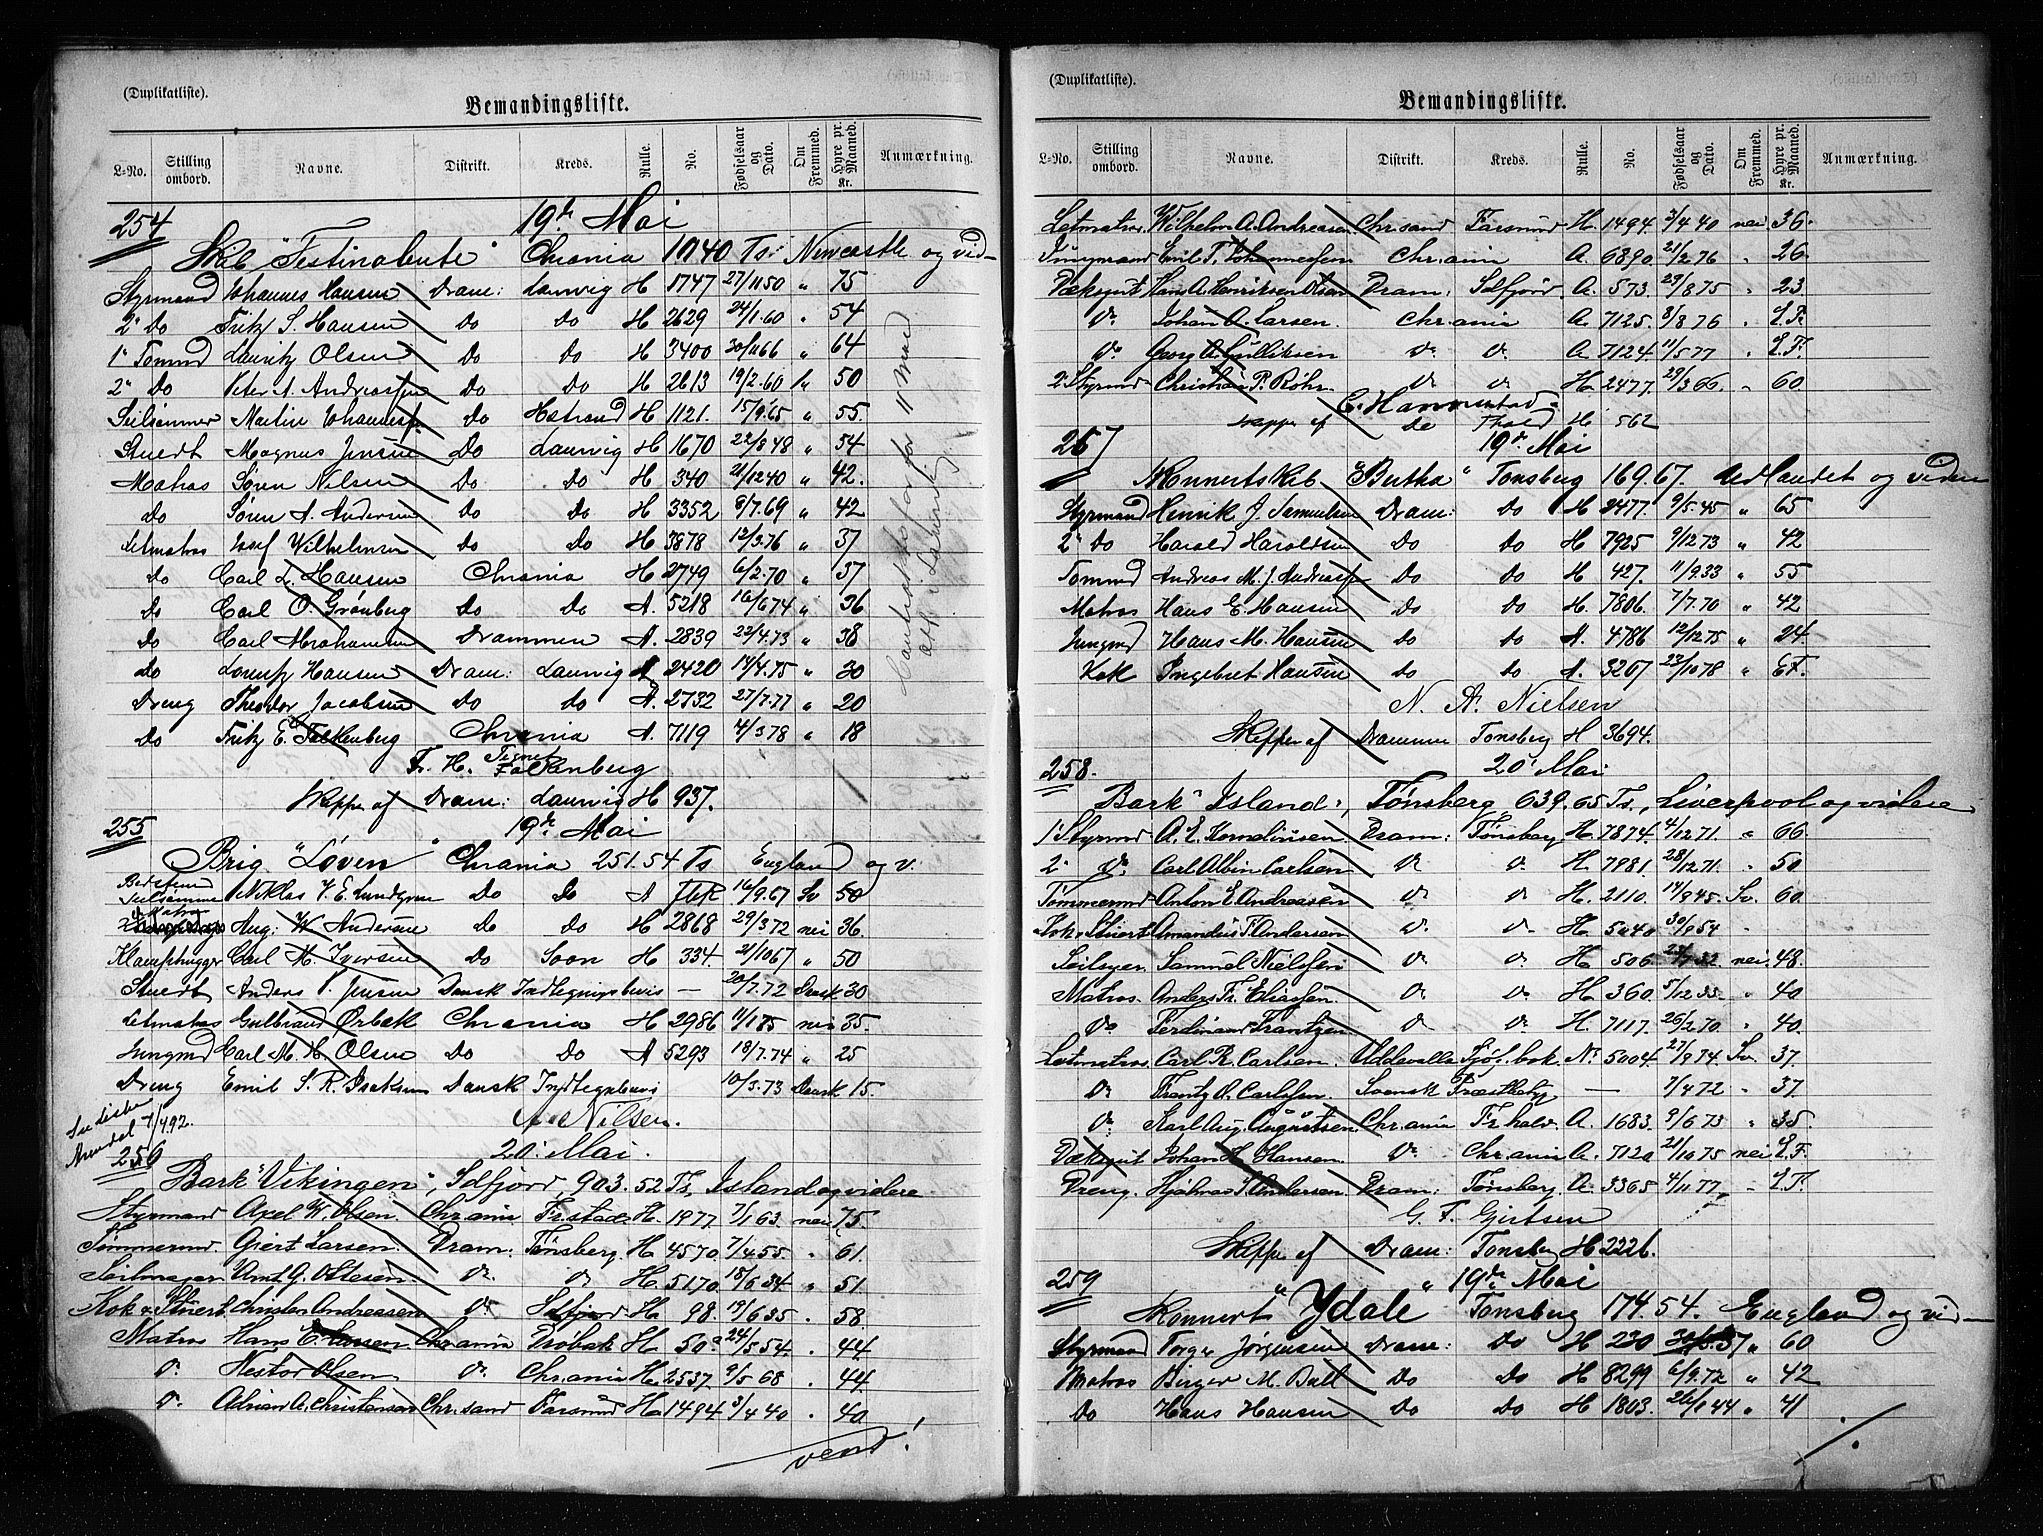 (Duplikatliste).
Bemandingsliste.
L-No. Stilling ombord. Navne. Distrikt. Kreds. Rulle. No. Fødselsaar og Dato. Om Fremmed. Hyre pr. Maaned. Kr. Anmærkning.
254 19de Mai
Skib "Festina lente" Chrania 1040 Ts: Newcastle og vid-
Styrmand Johannes Hansen Dram: Laurvig H 1747 27/11 50 " 75
2' Do Fritz S. Hansen Do Do H 2629 24/1.60 " 54
1' Tømmd Lauritz Olsen Do Do H 3400 30/11 66 " 64
2' Do Peter A. Andreassen Do Do H 2613 19/2.60 " 50
Seilsømmer Martin Johannes Do Hstrand H 1121. 15/9.65 " 55.
Stuert Magnus Jensen Do Laurvig H 1670 22/8 48 " 54
Matros Søren Nilsen Do Do H 340 21/12 40 " 42.
Do Søren A. Andersen Do Do H 3352 8/7.69 " 42
Letmatros Josef Wilhelmsen Do Do H 3878 12/3.76 " 37
Do Carl L. Hansen Chrania H 2749 6/2.70 " 37
Do Carl O. Grønberg Do Do A. 5218 16/6 74 " 36
Do Carl Abrahamsen Drammen A. 2839 22/4.73 " 38
Do Lorentz Hansen Dram: Laurvig A 2420 14/4.75 " 30
Dreng Theodor Jacobsen Do Do A. 2732 27/7.77 " 20
Do Fritz E. Falkenberg Chrania A. 7119 4/3 78 " 18
Fr. H. Tegner Falkenberg
Skipper af Dram: Laurvig H 937.
255 19de Mai
Brig "Løven" Chrania 251.54 Ts England og v.
Seilsømmer Niklas V. E. Lundgren Do Do A 16/9.67 Sv 50
Matros Aug: W. Andersen do Do H 2868 29/3 72 nei 36
Klamphugger Carl H. Iversen Do Soon H 334. 21/10 67 " 50
Stuert Anders P. Jensen Dansk Indtegningsbevis — 20/7.72 Dansk 30
Letmatros Gulbrand Ørbæk Chrania H 2986 11/1 75 nei 35.
Jungmd Carl M. H. Olsen Do Do A 5293 18/7.74 " 25
Dreng Emil S. R. Isaksen Dansk Indtegnbevis 10/3.73 Dansk 15.
A. Nilsen.
Se Liste Arendal 7/4 92.
256 20' Mai.
Bark "Vikingen", Idfjord, 903.52 Ts, Island og videre
Styrmand Axel W. Olsen. Chrania Fr.stad H. 1977 7/1 63. nei 75
Tømmermd. Giert Larsen. Dram. Tønsberg. H 4570 7/4 55. . 61.
Seilmager Amt G. Ottesen Do Do H. 5170 18/6 34 " 51
Kok & Stuert. Christen Andreassen Do Idfjord H. 98. 19/6 35. . 58.
Matros Hans C. Larsen Chrania Drøbak H. 50 24/5 54. . 44
Do Nestor Olsen Do Chrania H. 2537. 9/5 68 . 44.
Do Adrian A. Christensen Chr.sand Farsund H. 1494 3/4 40 . 40.
vend!
Contrasthe for 11 Mand
(Duplikatliste).
Bemandingsliste.
L-No. Stilling ombord. Navne. Distrikt. Kreds. Rulle. No. Fødselsaar og Dato. Om Fremmed. Hyre pr. Maaned. Kr. Anmærkning.
Letmatros. Wilhelm A. Andreasen Chr.sand Farsund H. 1494. 3/4 40 nei 36.
Jungmand Emil T. Johannessen Chrania A. 6890. 21/2 76 " 26.
Dæksgut Hans A. Henriksen Olsen Dram. Idfjord. A. 573. 29/8 75 . 23
Do Johan A. Larsen. Chrania A. 7125. 3/8 76 . E.F.
Do Georg A. Gulliksen Do Do A. 7124. 11/5 77 . E.F.
2. Styrmd Christian P. Røhr. Do Do H. 2477. 29/3 66. . 60
C. Hammerstad
Skipper af do Fhald H 562
267 19de Mai
Konnertskib "Bertha" Tonsberg 169.67. Udlandet og videre
Styrmand Henrik J. Samuelsen Dram: Do H 2477 9/5.45 " 65
2' Do Harald Haraldsen Do Do H 7925 9/12 73 " 42
Tømmd Andreas M. J. Andreassen Do Do H 427. 11/9.33 " 55
Matros Hans E. Hansen Do Do H. 7806. 7/7.70 " 42
Jungmd Hans M. Hansen Do Do A. 4786 12/12 75 " 24.
Kok Ingebret Hansen do do A. 3267 23/10 78 " EF.
N. A. Nielsen
Skipper af Drammen Tonsberg H 3694.
258. 20' Mai
Bark "Island", Tønsberg, 639.65 Ts, Liverpool og videre
1' Styrmd A. E. Kornelinsen Dram: Tønsberg H. 7874. 4/12 71. " 66.
2' Do Carl Albin Carlsen Do Do H. 7981. 28/12 71. . 50
Tømmermd Anton E. Andreasen Do Do H. 2110. 14/9 45. Sv. 60.
Kok & Stuert Amandus T. Andersen Do Do H. 5040 30/9 54 .
Seilsyer. Samuel Nielsen Do Do H 506. nei 48.
Matros. Anders Fr. Eliassen Do Do H. 360. 5/12 33. . 40
Do Ferdinand Frantzen Do Do H. 7117. 26/2 70. . 40.
Letmatros. Carl R. Carlsen. Uddevalla Sjöf. bok. No. 5004. 27/9 74. Sv. 37.
Do Frantz O. Carlsen. Svensk Præstbevis — 7/4 72 - 37.
Do Karl Aug. Augustsen Chrania Fr.hald. A. 1683. 9/6 73 " 35.
Dæksgut Johan H. Hansen. Do Chrania A. 7120 21/10 75 nei E.F.
Dreng. Hjalmar I. Andersen. Dram: Tønsberg. A. 3365 4/11 77 - E.F.
G. F. Gjertsen
Skipper af Dram: Tonsberg H 2226.
259 19de Mai
Konnert "Ydale" Tonsberg 174.54. England og vid—
Styrmand Torger Jørgensen Dram: Do H 230 37 " 60
Matros Birger M. Bull Do Do H 8299 6/9.72 " 42
Do Hans Hansen Do Do H 1803. 26/1 44 " 41